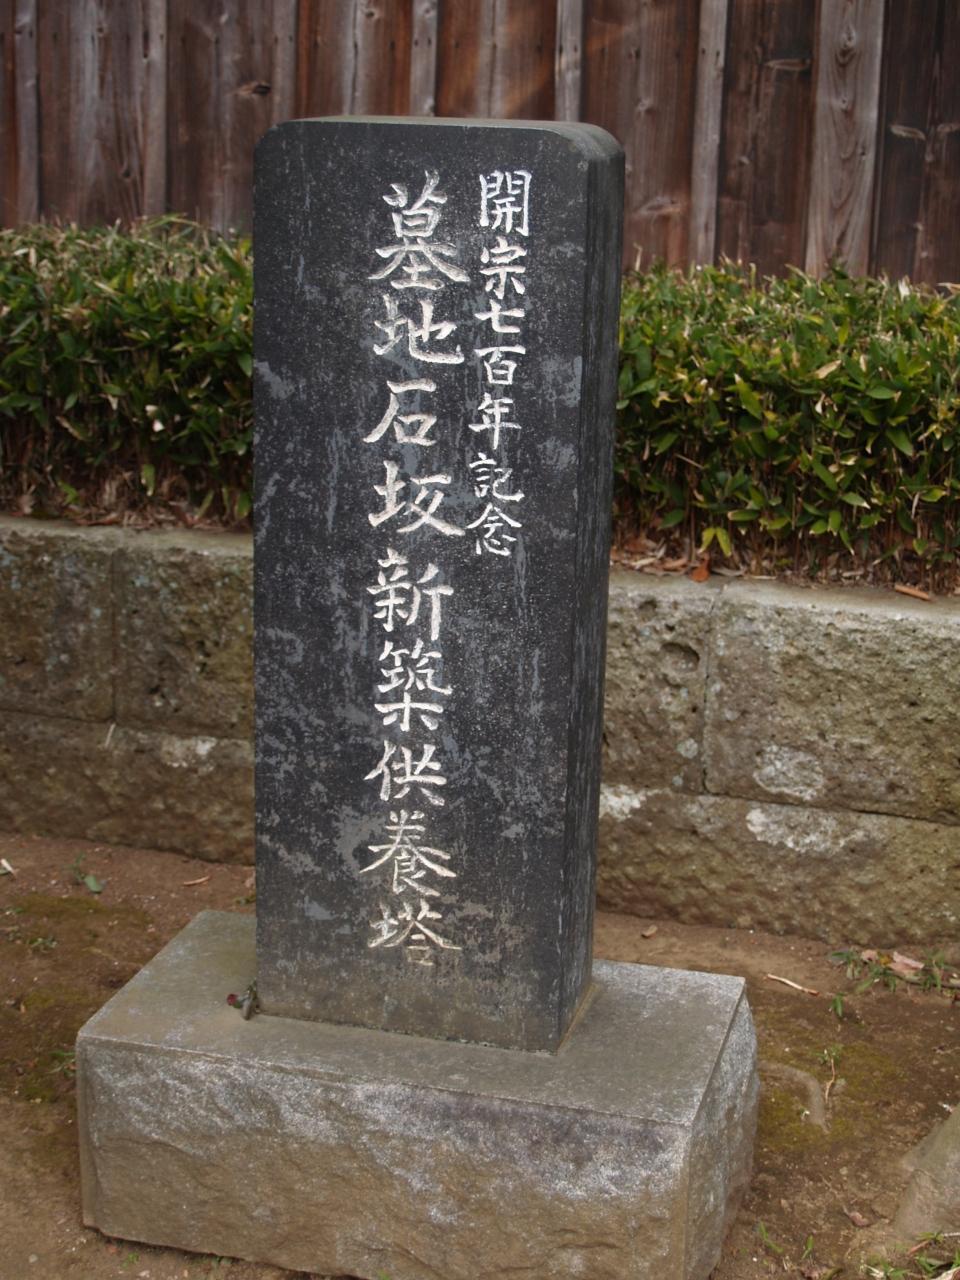 開宗七百年記念
墓地石坂新築供養塔